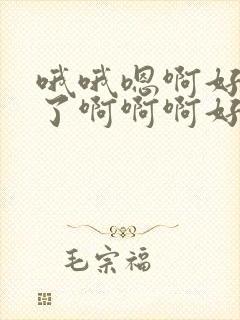 哦哦嗯啊好
了啊啊啊好
毛宗福